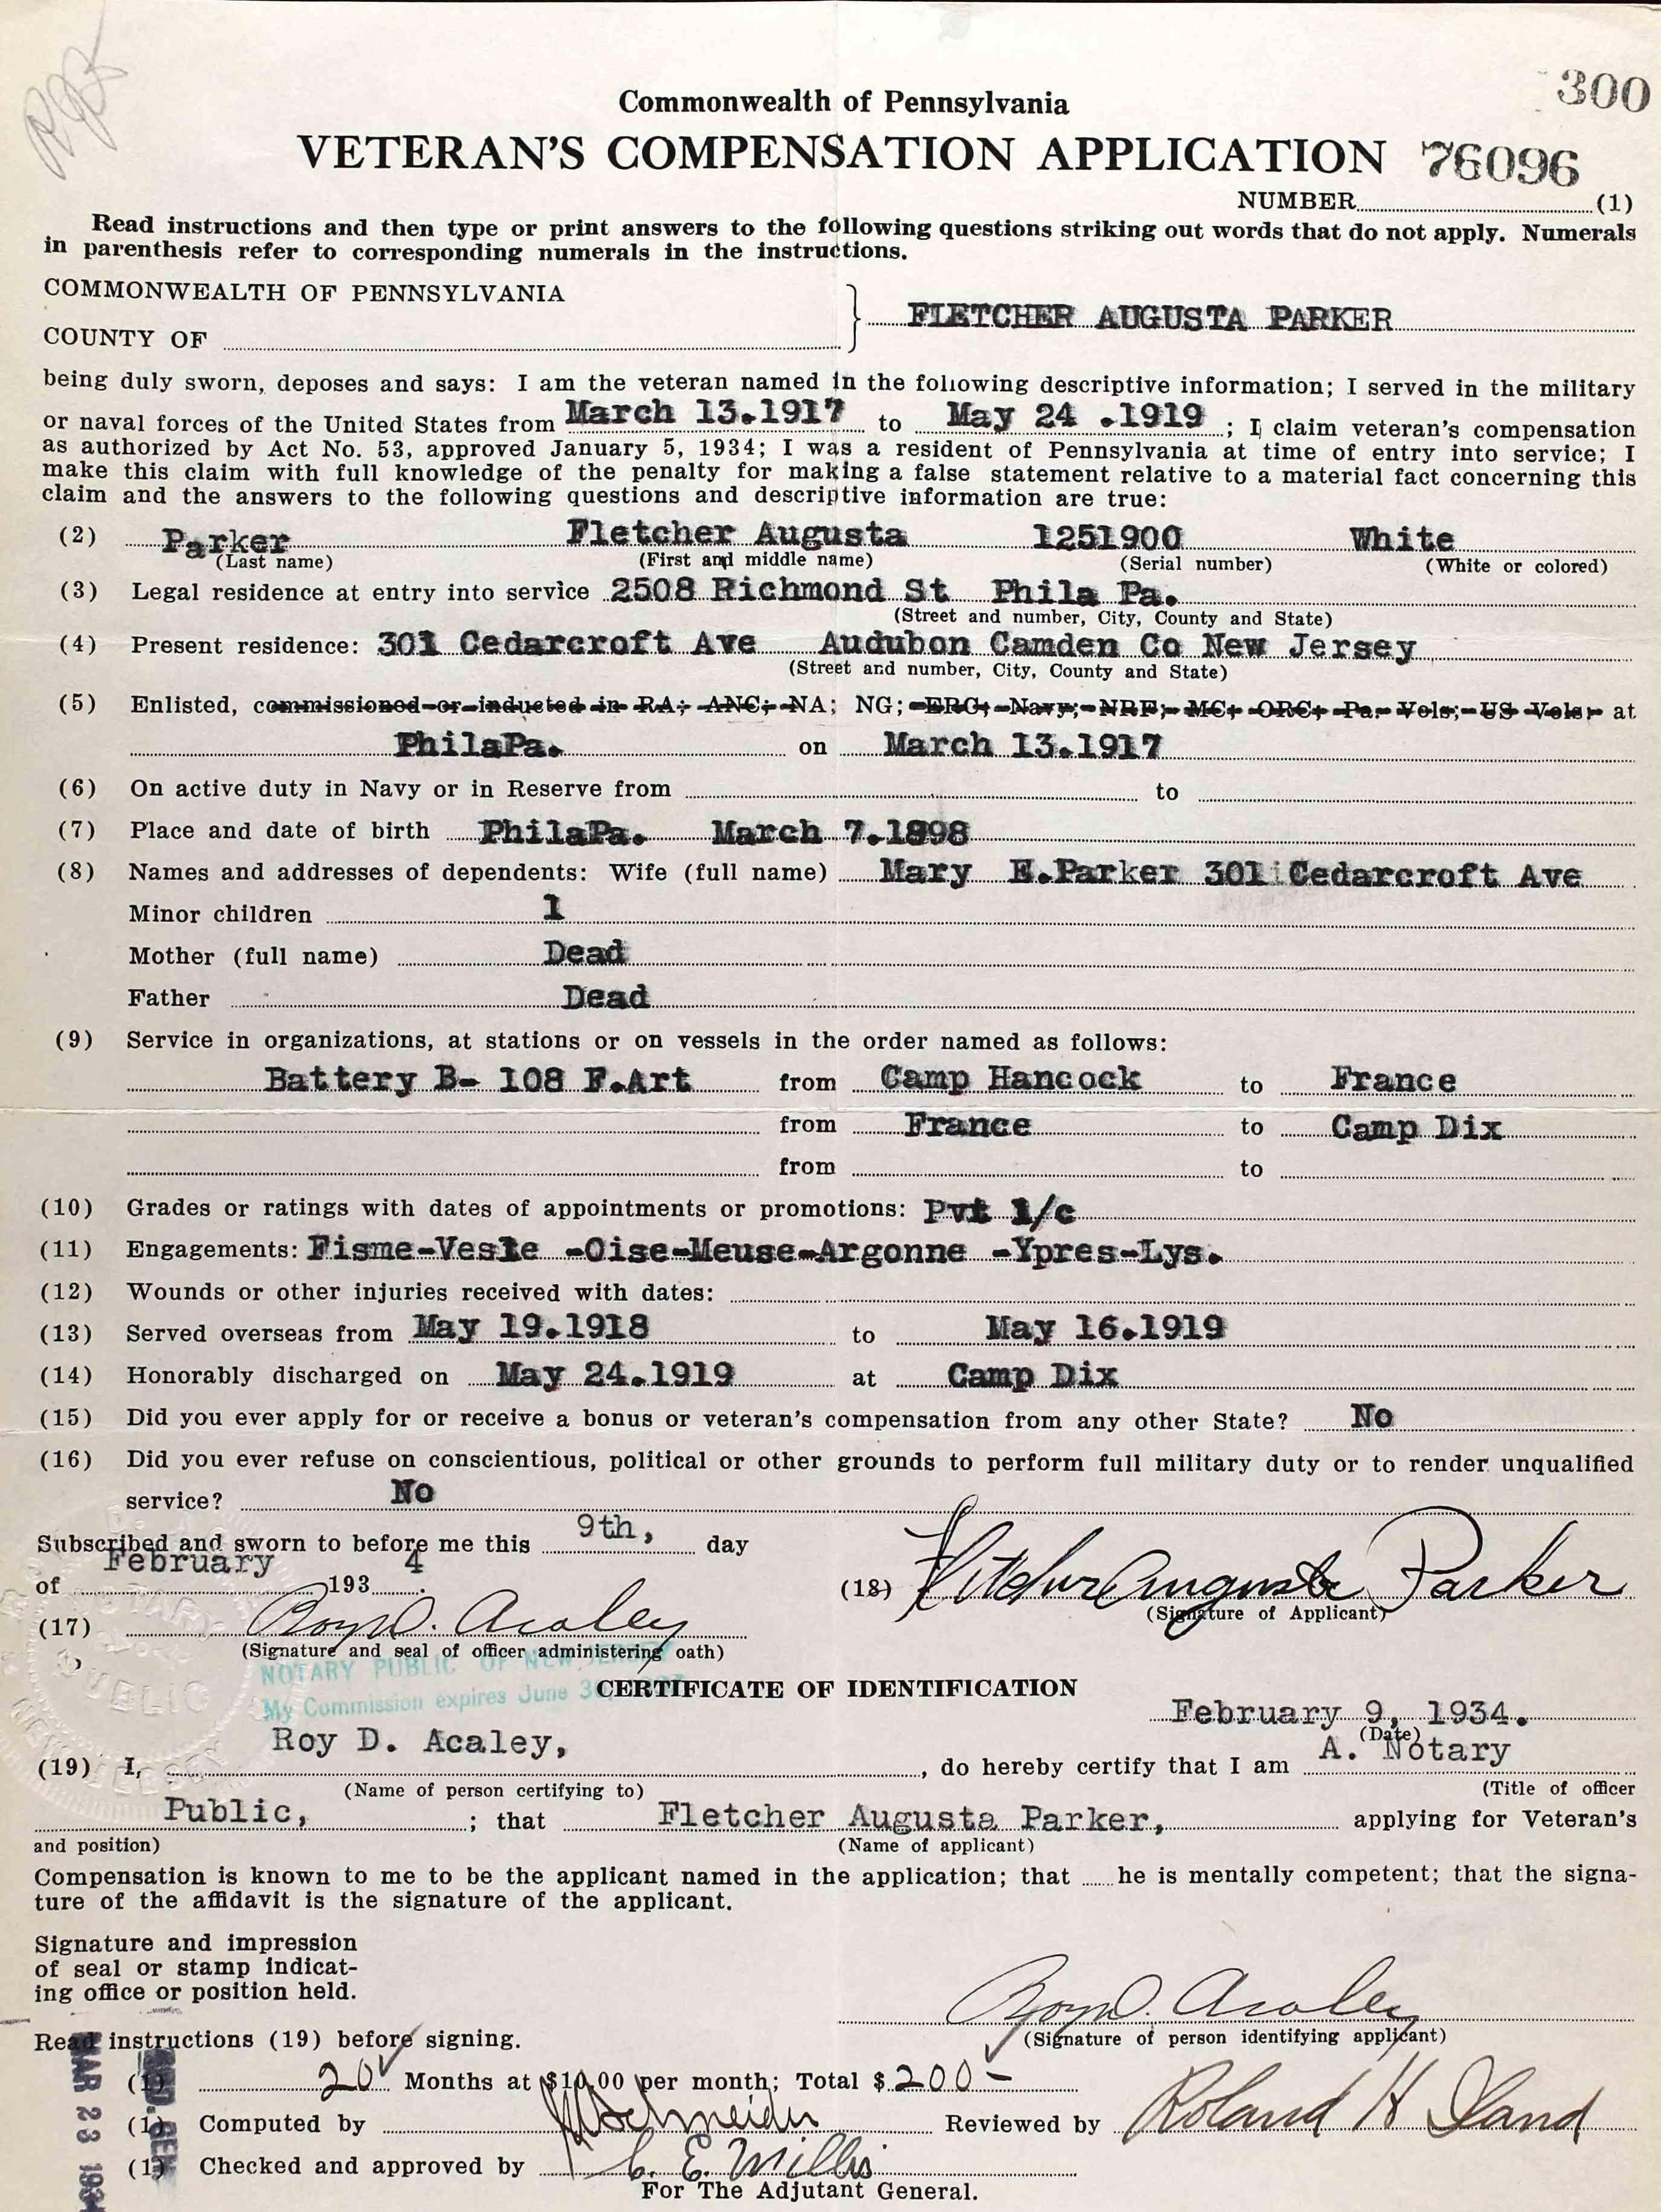 300
Commonwealth of Pennsylvania
VETERAN'S COMPENSATION APPLICATION 76096
NUMBER (1)
Read instructions and then type or print answers to the following questions striking out words that do not apply. Numerals
in parenthesis refer to corresponding numerals in the instructions.
COMMONWEALTH OF PENNSYLVANIA
FLETCHER AUGUSTA PARKER
COUNTY OF
being duly sworn, deposes and says: I am the veteran named in the following descriptive information; I served in the military
or naval forces of the United States from March 13.1917 to May 24 .1919 ; I claim veteran's compensation
as authorized by Act No. 53, approved January 5, 1934; I was a resident of Pennsylvania at time of entry into service; I
make this claim with full knowledge of the penalty for making a false statement relative to a material fact concerning this
claim and the answers to the following questions and descriptive information are true:
(2) Parker Fletcher Augusta 1251900 White
(Last name) (First and middle name) (Serial number) (White or colored)
(3) Legal residence at entry into service 2508 Richmond St Phila Pa.
(Street and number, City, County and State)
(4) Present residence: 301 Cedarcroft Ave Audubon Camden Co New Jersey
(Street and number, City, County and State)
(5) Enlisted, commissioned or inducted in RA; ANC; NA; NG; ERC; Navy; NRF; MC; ORC; Pa. Vols; US Vols; at
PhilaPa. on March 13.1917
(6) On active duty in Navy or in Reserve from to
(7) Place and date of birth PhilaPa. March 7.1898
(8) Names and addresses of dependents: Wife (full name) Mary E.Parker 301 Cedarcroft Ave
Minor children 1
Mother (full name) Dead
Father Dead
(9) Service in organizations, at stations or on vessels in the order named as follows:
Battery B- 108 F.Art from Camp Hancock to France
from France to Camp Dix
from to
(10) Grades or ratings with dates of appointments or promotions: Pvt 1/c
(11) Engagements: Fisme-Vesle -Oise-Meuse-Argonne -Ypres-Lys.
(12) Wounds or other injuries received with dates:
(13) Served overseas from May 19.1918 to May 16.1919
(14) Honorably discharged on May 24.1919 at Camp Dix
(15) Did you ever apply for or receive a bonus or veteran's compensation from any other State? No
(16) Did you ever refuse on conscientious, political or other grounds to perform full military duty or to render unqualified
service? No
Subscribed and sworn to before me this 9th, day
of February 193 4.
(18) Fletcher Augusta Parker
(Signature of Applicant)
(17) Roy D. Acaley
(Signature and seal of officer administering oath)
NOTARY PUBLIC OF NEW JERSEY
My Commission expires June
CERTIFICATE OF IDENTIFICATION
February 9, 1934.
(Date)
(19) I, Roy D. Acaley, , do hereby certify that I am A. Notary
(Name of person certifying to) (Title of officer
Public, ; that Fletcher Augusta Parker, applying for Veteran's
and position) (Name of applicant)
Compensation is known to me to be the applicant named in the application; that he is mentally competent; that the signa-
ture of the affidavit is the signature of the applicant.
Signature and impression
of seal or stamp indicat-
ing office or position held.
Roy D. Acaley
(Signature of person identifying applicant)
Read instructions (19) before signing.
(1) 20 Months at $10.00 per month; Total $ 200-
(1) Computed by Schneider Reviewed by Roland H
(1) Checked and approved by C. E. Willis
For The Adjutant General.
MAR 23 1934